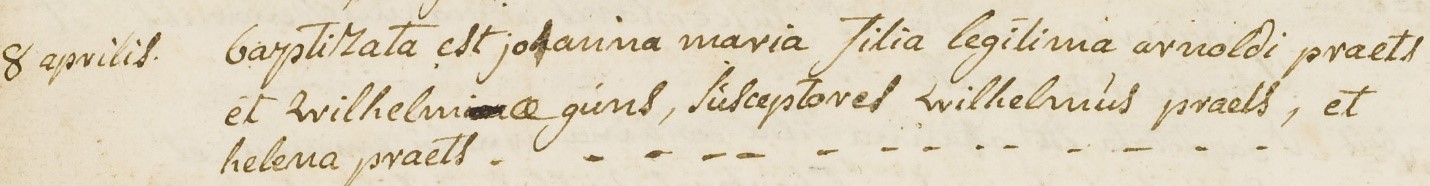 8 aprilis. baptizata est johanna maria filia legitima arnoldi praets
et wilhelminae güns, süsceptores wilhelmüs praets, et
helena praets - - - - - - - - - - - - - -